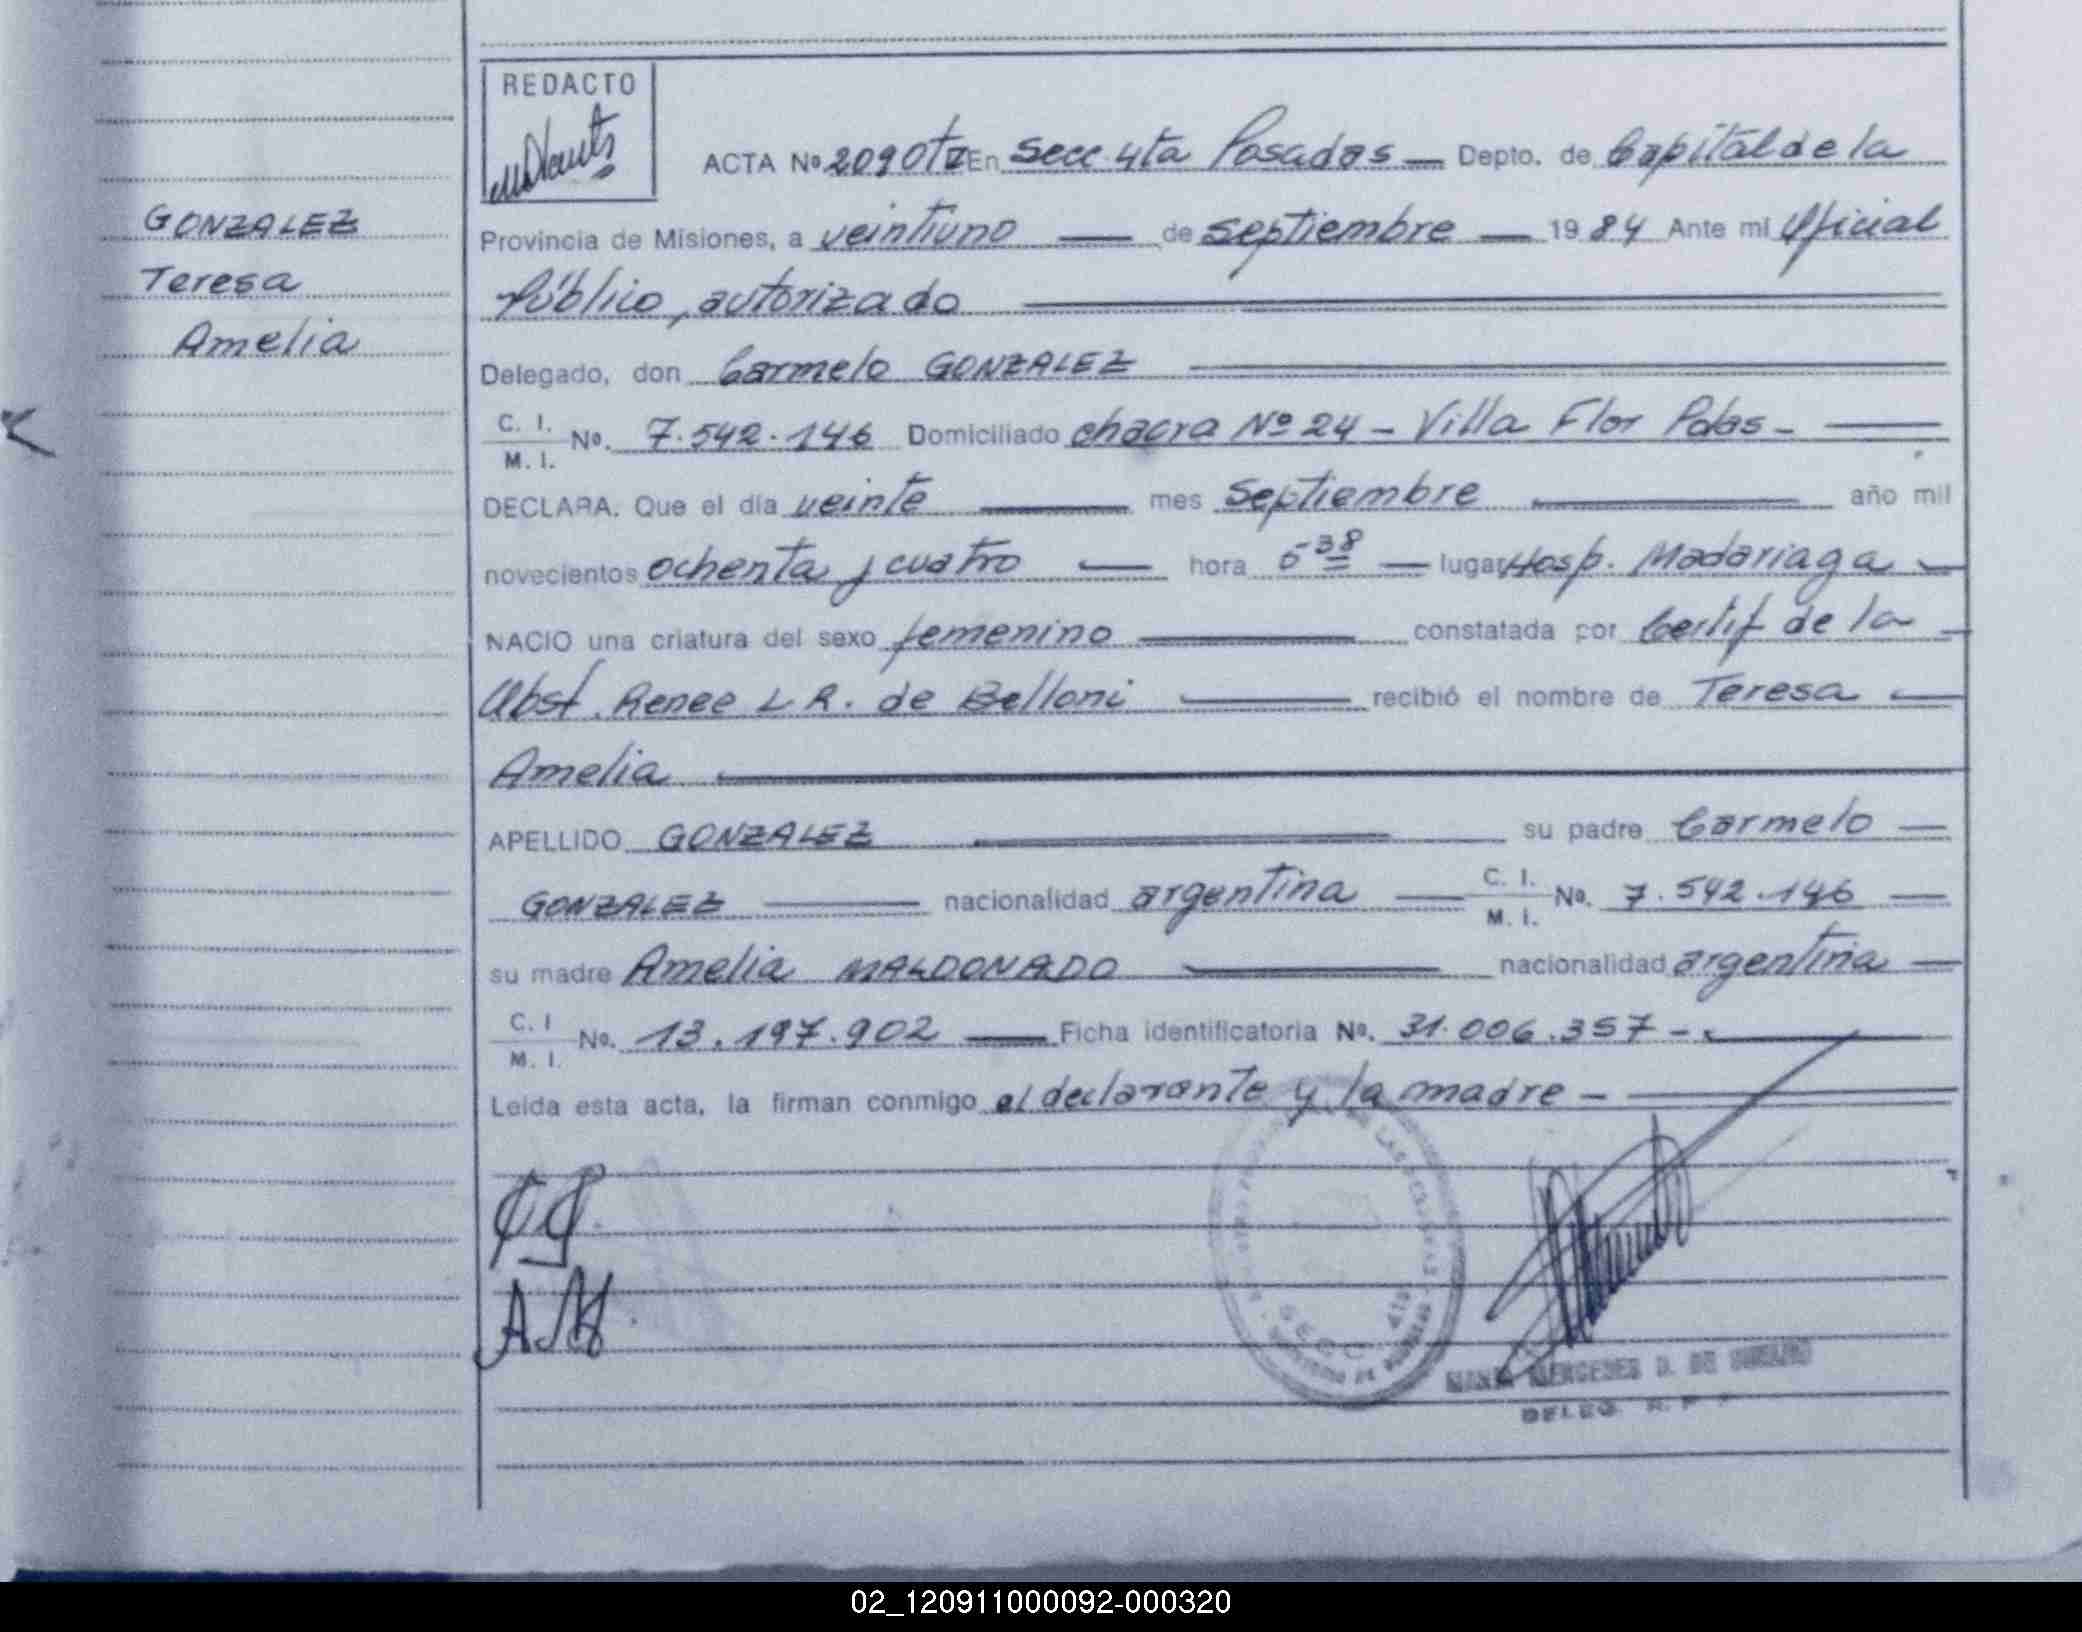 REDACTO
ACTA Nº 2090 En Secc. 4ta Posadas — Depto. de Capital de la
GONZALEZ
Provincia de Misiones, a veintiuno — de septiembre — 19 84 Ante mi Oficial
Teresa
Público, autorizado
Amelia
Delegado, don Carmelo GONZALEZ
C. I.
M. I. Nº. 7.542.146 Domiciliado chacra Nº 24 - Villa Flor Pdas -
DECLARA. Que el día veinte — mes septiembre — año mil
novecientos ochenta y cuatro — hora 5 38 — lugar Hosp. Madariaga
NACIO una criatura del sexo femenino — constatada por Certif de la
Obst. Renee L R. de Belloni — recibió el nombre de Teresa
Amelia
APELLIDO GONZALEZ — su padre Carmelo
GONZALEZ — nacionalidad argentina — C. I. M. I. Nº. 7.542.146
su madre Amelia MALDONADO — nacionalidad argentina
C. I M. I. Nº. 13.197.902 — Ficha identificatoria Nº. 31.006.357 -
Leída esta acta, la firman conmigo el declarante y la madre -
A.M.
SECC. 4ta
MARIA MERCEDES D. DE
DELEG. R. P.
02_120911000092-000320